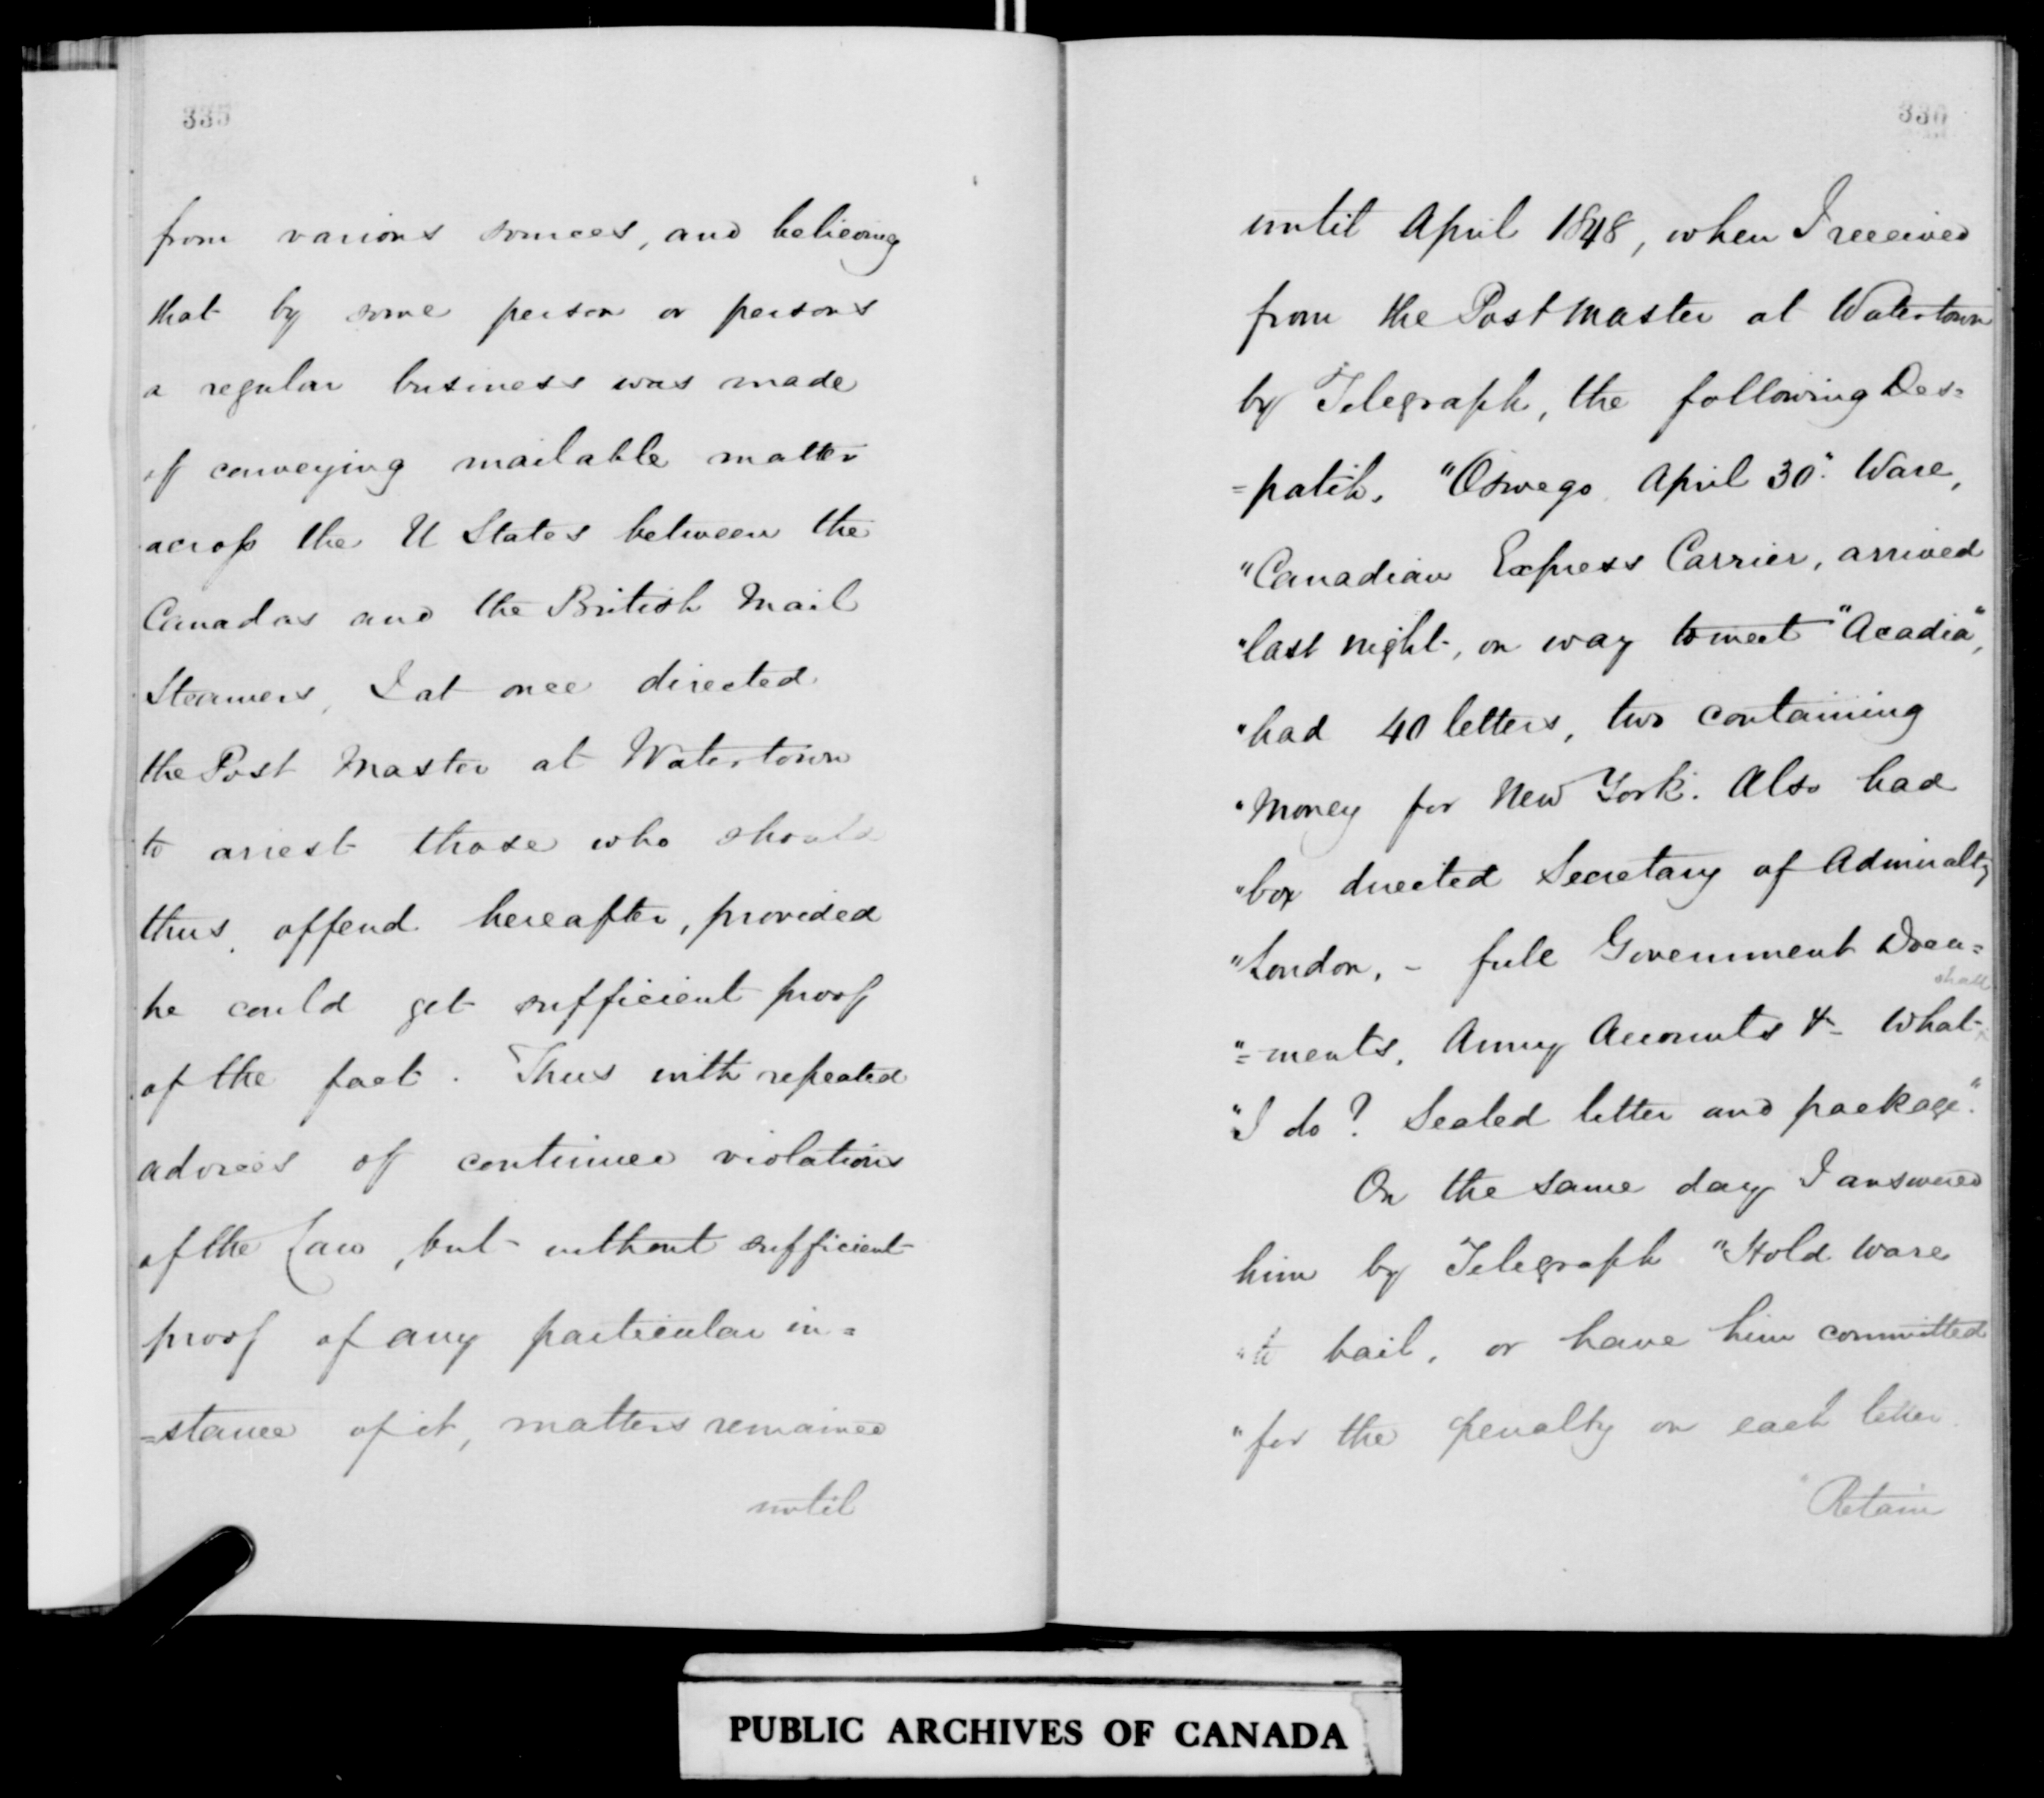 335
from various sources, and believing
that by some person or persons
a regular business was made
of conveying mailable matter
across the U States between the
Canadas and the British Mail
Steamers, I at once directed
the Post Master at Watertown
to arrest those who should
thus offend hereafter, provided
he could get sufficient proof
of the fact. Thus with repeated
advices of continued violations
of the Law, but without sufficient
proof of any particular in=
=stance of it, matters remained
until
336
until April 1848, when I received
from the Post Master at Watertown
by Telegraph, the following Des=
=patch. "Oswego April 30". Ware,
"Canadian Express Carrier, arrived
"last night, on way to meet "Acadia",
"had 40 letters, two containing
"Money for New York. Also had
"box directed Secretary of Admiralty
"London, - full Government Docu=
"=ments, Army Accounts & What shall
"I do? Sealed letter and package".
On the same day I answered
him by Telegraph "Hold Ware
"to bail, or have him committed
"for the penalty on each letter.
"Retain
PUBLIC ARCHIVES OF CANADA